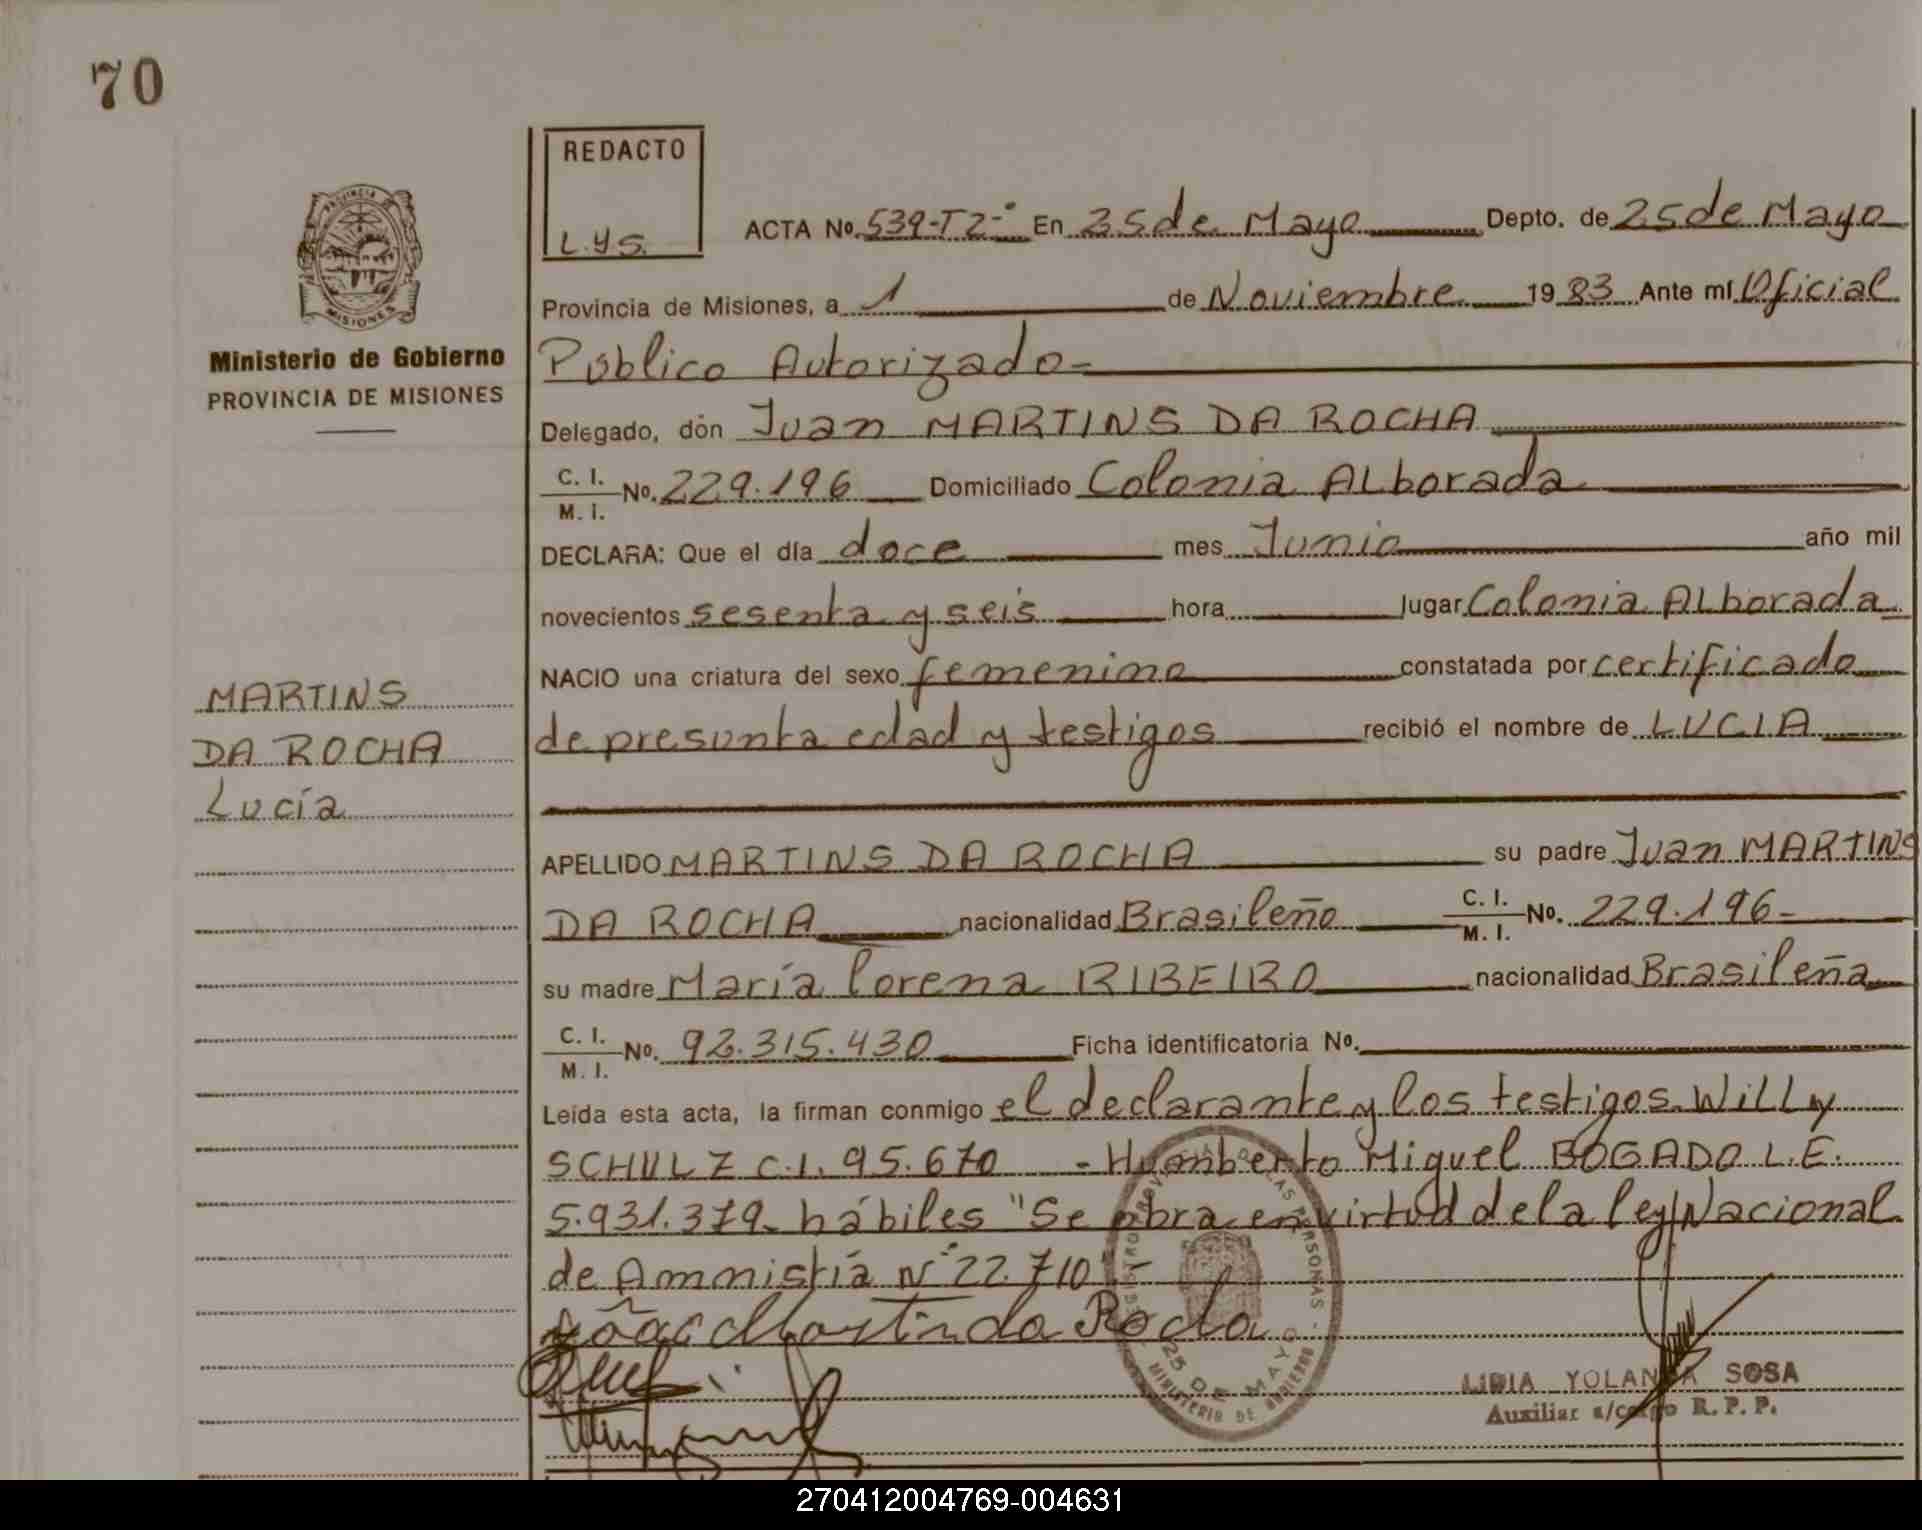 70
REDACTO
L.Y.S.
ACTA No. 539-T2-° En 25 de Mayo Depto. de 25 de Mayo
Provincia de Misiones, a 1 de Noviembre 1983 Ante mí Oficial
Público Autorizado-
Delegado, don Juan MARTINS DA ROCHA
C. I. / M. I. No. 229.196 Domiciliado Colonia ALborada
DECLARA: Que el día doce mes Junio año mil
novecientos sesenta y seis hora lugar Colonia ALborada
NACIO una criatura del sexo femenino constatada por certificado
de presunta edad y testigos recibió el nombre de LUCIA
APELLIDO MARTINS DA ROCHA su padre Juan MARTINS
DA ROCHA nacionalidad Brasileño C. I. / M. I. No. 229.196-
su madre María lorena RIBEIRO nacionalidad Brasileña
C. I. / M. I. No. 92.315.430 Ficha identificatoria No.
Leída esta acta, la firman conmigo el declarante y los testigos Willy
SCHULZ C.I. 95.670 - Humberto Miguel BOGADO L.E.
5.931.379- hábiles "Se obra en virtud de la ley Nacional
de Ammistiá N° 22.710"-
João Martin da Rocha
LIDIA YOLANDA SOSA
Auxiliar a/cargo R. P. P.
PROVINCIA DE MISIONES
Ministerio de Gobierno
PROVINCIA DE MISIONES
MARTINS
DA ROCHA
Lucía
25 DE MAYO
MINISTERIO DE GOBIERNO
270412004769-004631